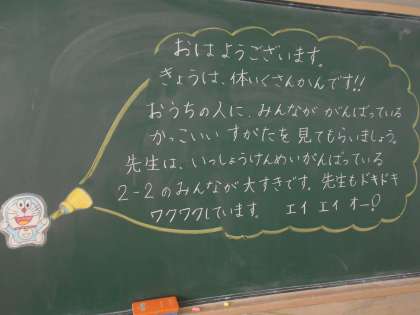 おはようございます。
きょうは、体いくさんかんです!!
おうちの人に、みんなが がんばっている
かっこいい すがたを見てもらいましょう。
先生は、いっしょうけんめいがんばっている
2-2のみんなが大すきです。先生もドキドキ
ワクワクしています。 エイ エイ オー!